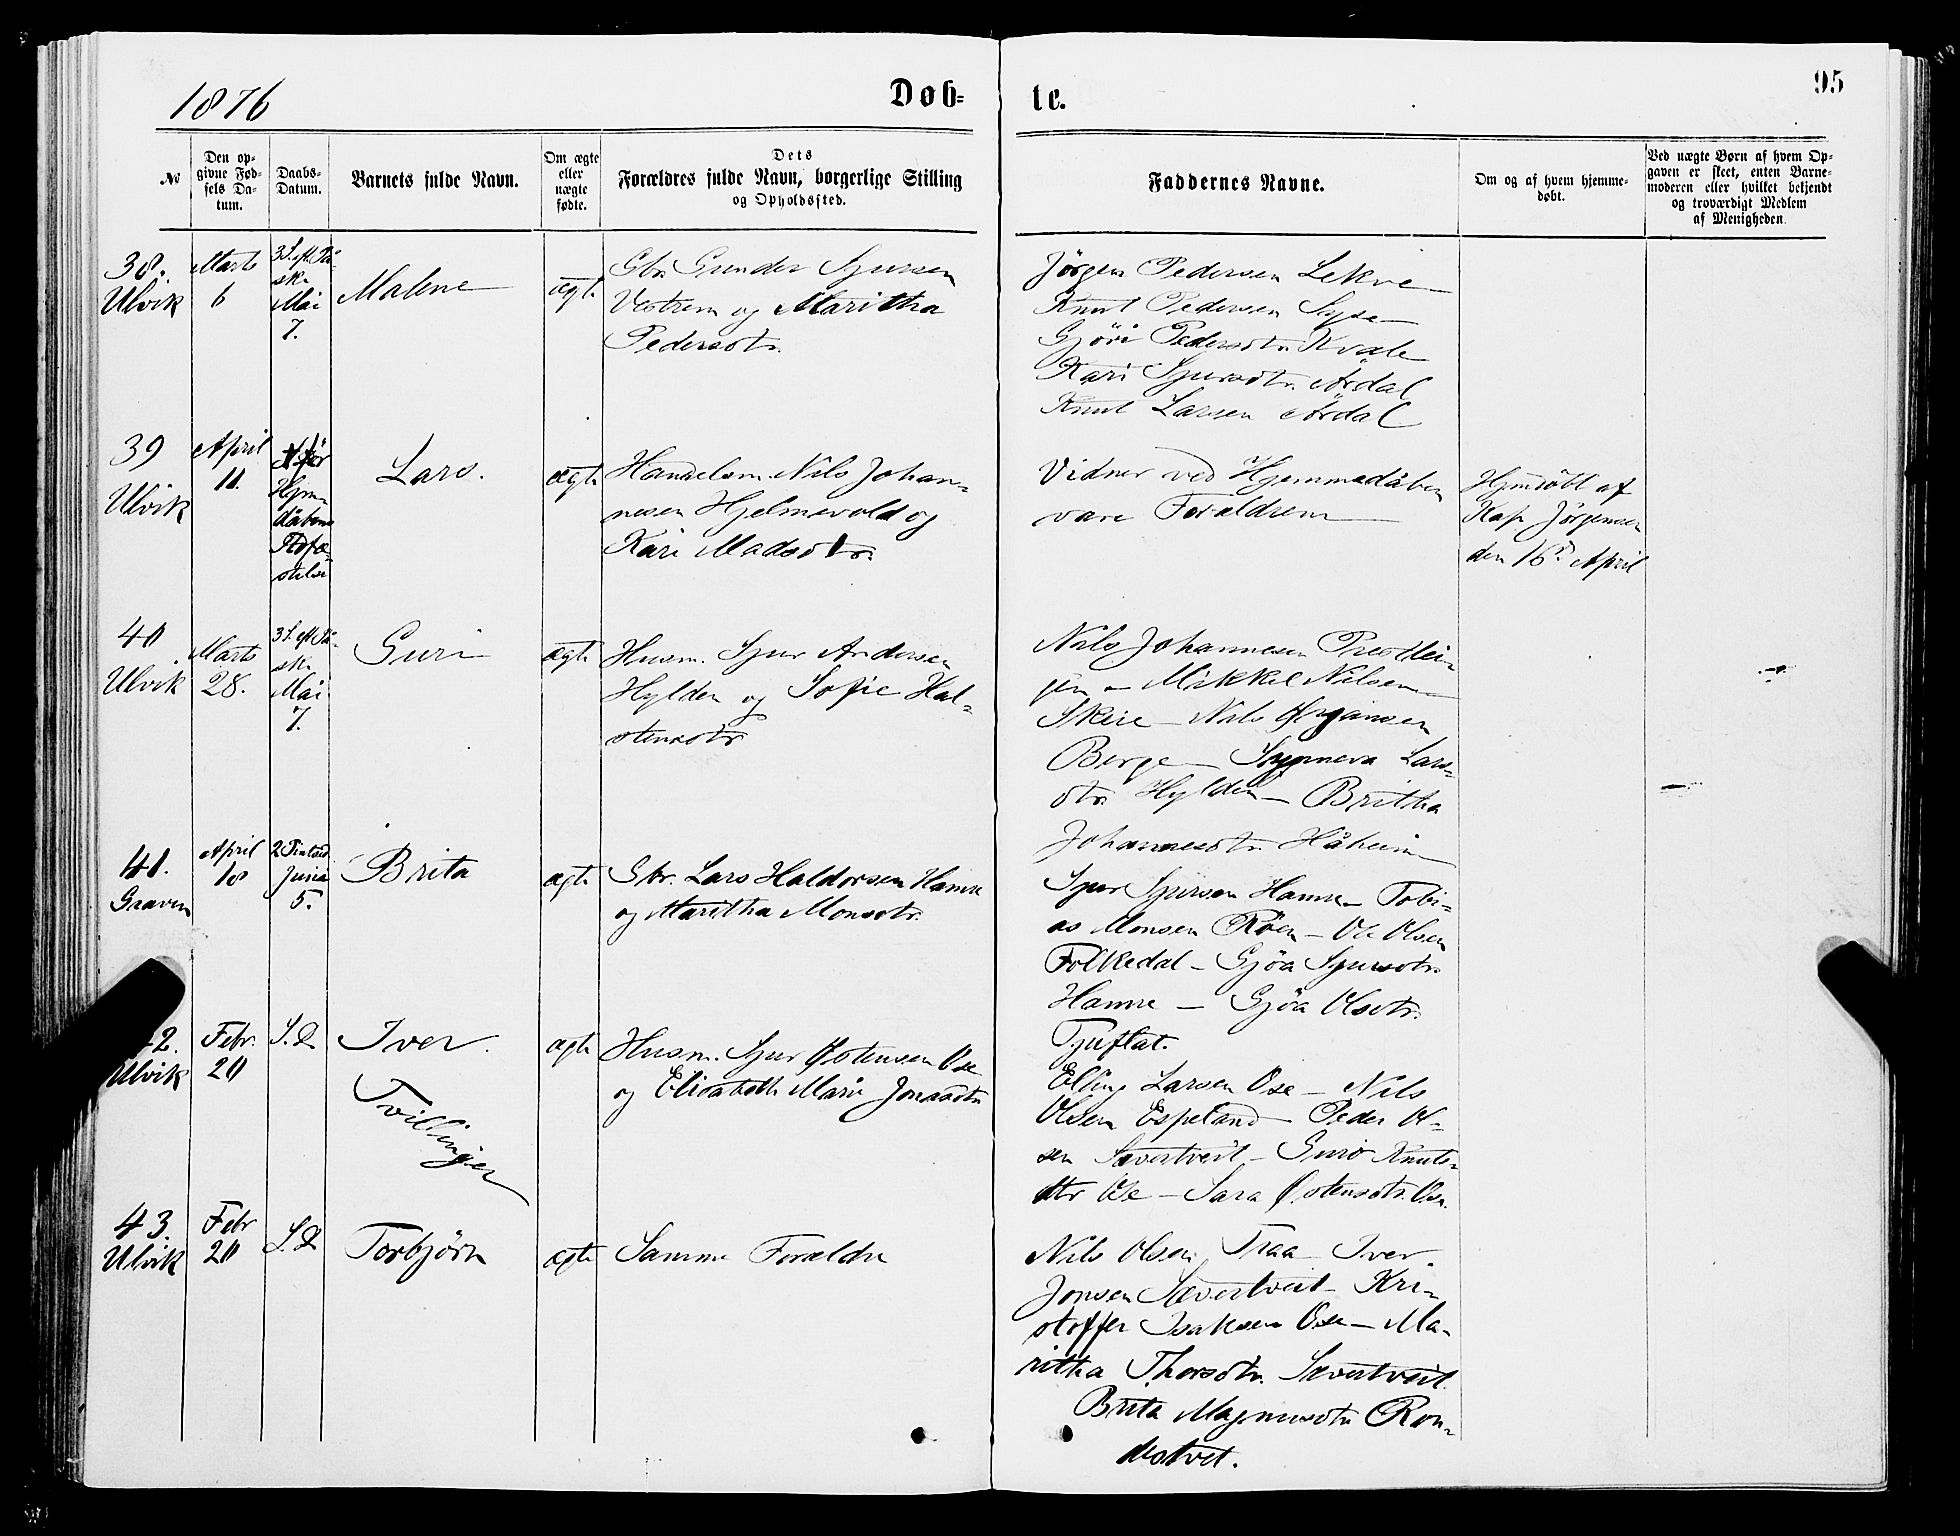 1876
Døb=
te.
95
№
Den op-
givne Fød-
sels Da-
tum.
Daabs-
Datum.
Barnets fulde Navn.
Om ægte
eller
uægte
fødte.
Dets
Forældres fulde Navn, borgerlige Stilling
og Opholdssted.
Faddernes Navne.
Om og af hvem hjemme-
døbt.
Ved uægte Børn af hvem Op-
gaven er skeet, enten Barne-
moderen eller hvilket bekjendt
og troværdigt Medlem
af Menigheden.
38.
Ulvik
Marts
6
3 S. eft. På-
ske
Mai
7.
Malene
ægte
Gbr. Gunder Sjursen
Vestrem og Maritha
Pedersdtr.
Jörgen Pedersen Lekve
Knut Pedersen Syse
Gjöri Pedersdtr. Kvale
Kari Sjursdtr. Årdal
Knut Larsen Årdal
39
Ulvik
April
11.
Hjem-
dåbens
Stadfæ-
stelse
Lars.
ægte
Handelsm. Nils Johan-
nesen Hjelmevold og
Kari Madsdtr.
Vidner ved Hjemmedåben
vare Forældrene
Hjmdöbt af
Kap. Jörgensen
den 16d. April
40
Ulvik
Marts
28.
3 S. eft. På-
ske
Mai
7.
Guri
ægte
Husm. Sjur Andersen
Hylden og Sofie Hal-
stensdtr
Nils Johannesen Presttei-
gen – Mikkel Nilsen
Skeie – Nils Ørjansen
Berge – Synneva Lars-
dtr. Hylden – Britha
Johannesdtr. Håheim
41.
Graven
April
18
2 Pintsed.
Juni
5.
Brita
ægte
Gbr. Lars Haldorsen Hamre
og Maritha Monsdtr.
Sjur Sjursen Hamre – Tobi-
as Monsen Röen – Ole Olsen
Folkedal – Gjöa Sjursdtr.
Hamre – Gjöa Olsdtr.
Tjuflat.
42.
Ulvik
Febr.
20
S. D.
Iver.
Tvillinger
ægte
Husm. Sjur Østensen Ose
og Elisabeth Marie Jonasdtr
Elling Larsen Ose – Nils
Olsen Espeland – Peder Ol-
sen Sævertveit – Guro Knuts-
dtr Ose – Sara Østensdtr. Ose.
43.
Ulvik
Febr
20
S. D.
Torbjörn
ægte
Samme Forældre
Nils Olsen Traa – Iver
Jonsen Sævertveit – Kri-
stoffer Isaksen Ose – Ma-
ritha Thorsdtr. Sævertveit.
Brita Magnusdtr Ron-
destvet.